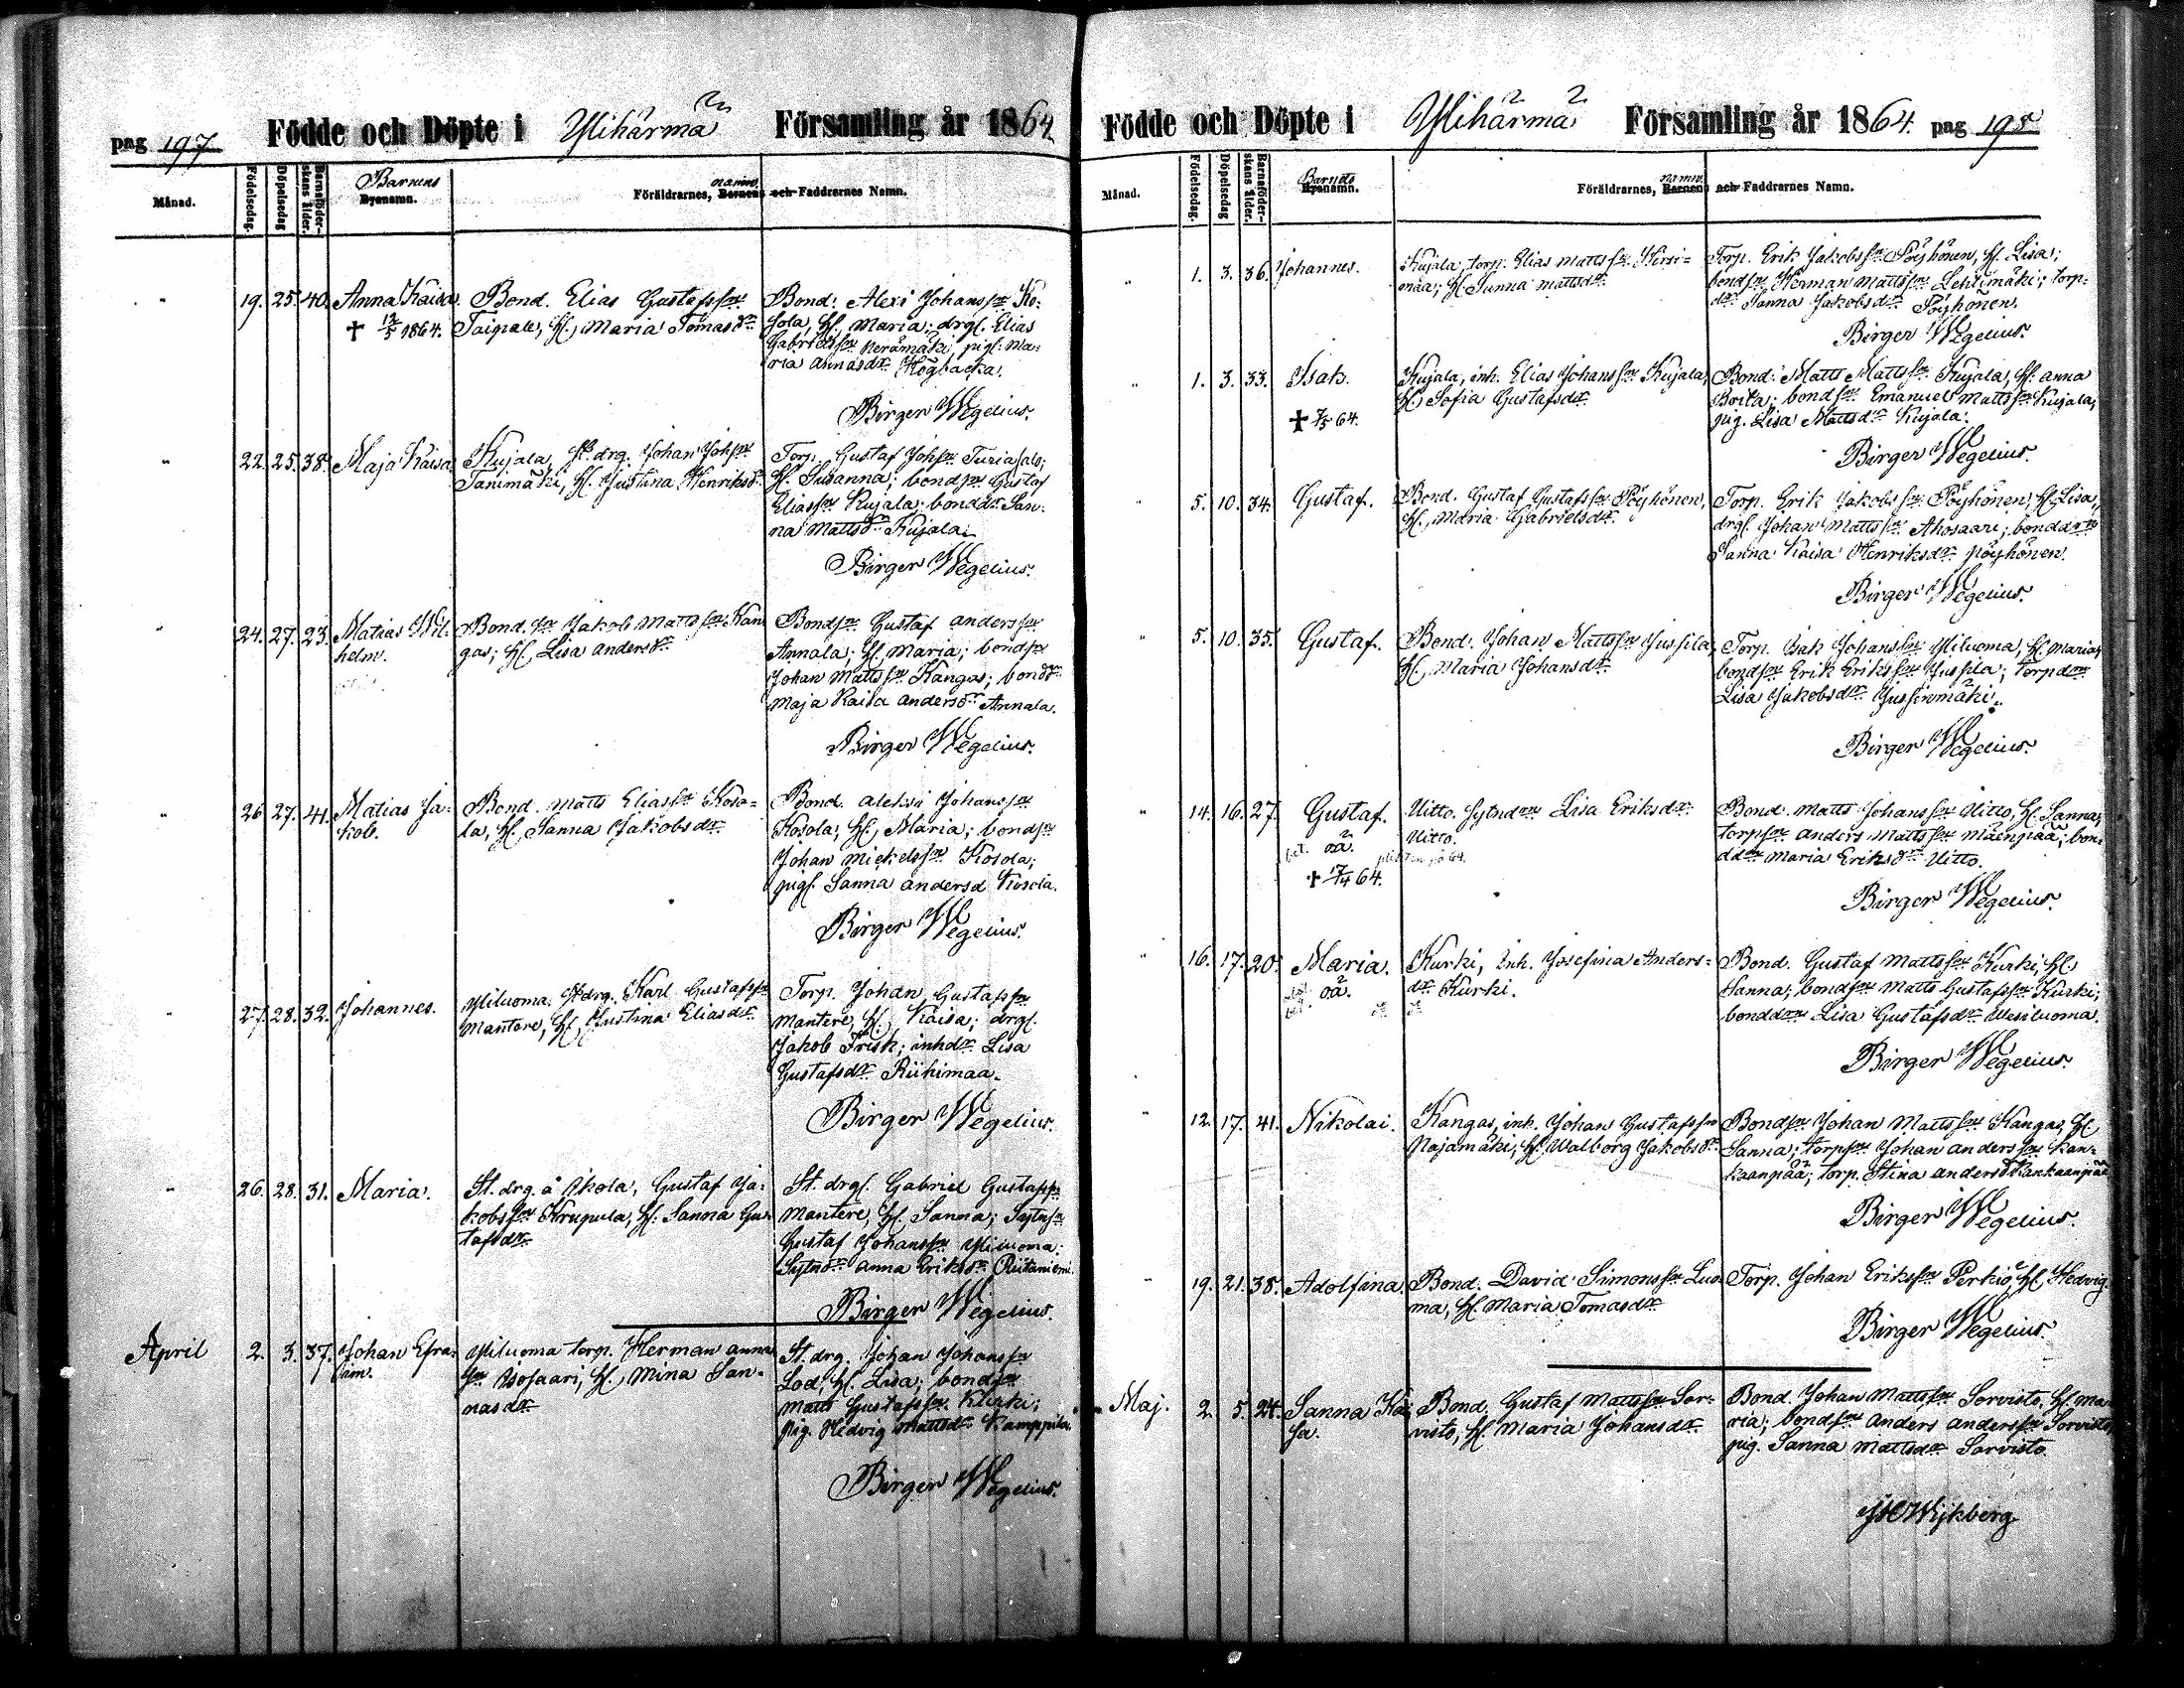 pag 197 Födde och Döpte i Ylihärmä Församling år 1864
Månad. Födelsedag. Döpelsedag Barnaföderskans ålder. Barnens Byanamn. Föräldrarnes, Barnens och Faddrarnes Namn. namn
" 19. 25. 40. Anna Kaisa. Bond. Elias Gustafsson Bond: Alexi Johansson Ko-
† 12/5 1864. Taipale, H. Maria Tomasdr sola, H. Maria; drgl. Elias
Gabrielsson Nerämäki pigl. Ma-
ria Annasdr Högbacka.
Birger Wegelius.
" 22. 25. 38. Maja Kaisa Kujala, St. drg. Johan Johsson Torp. Gustaf Johsson Turjasalo;
Tanimäki, H. Justina Henriksdr H. Susanna; bondson Gustaf
Eliasson Kujala; bonddr San-
na Mattsdr Kujala.
Birger Wegelius.
" 24. 27. 23. Matias Wil- Bond. son Jakob Mattsson Kan Bondson Gustaf Andersson
helm. gas; H. Lisa Andersdr Annala; H. Maria; bondson
Johan Mattsson Kangas; bonddr
Maja Kaisa Andersdr Annala.
Birger Wegelius.
" 26. 27. 41. Matias Ja- Bond. Matts Eliasson Koso- Bond. Aleksi Johansson
kob. la, H. Sanna Jakobsdr Kosola, H. Maria; bondson
Johan Mickelsson Kosola;
pigl. Sanna Andersd Kosola.
Birger Wegelius.
" 27. 28. 32. Johannes. Yliluoma. St drg. Karl Gustafsson Torp. Johan Gustafsson
Mantere, H. Justina Eliasdr Mantere, H. Kaisa; drgl.
Jakob Frisk; inhdr Lisa
Gustafsdr Riihimaa.
Birger Wegelius.
" 26. 28. 31. Maria. St. drg. å Skola, Gustaf Ja- St. drgl. Gabriel Gustafsson
kobsson Krupula, H. Sanna Gus- Mantere, H. Sanna; Sytnson
tafsdr Gustaf Johansson Yliluoma;
Sytndr Anna Eriksdr Riitaniemi.
Birger Wegelius.
April 2. 3. 37. Johan Efra- Yliluoma torp. Herman Anna St. drg. Johan Johansson
im. son Isosaari, H. Mina San- Lod, H. Lisa; bondson
nasdr Matts Gustafsson Kurki;
pig. Hedvig Mattsdr Kamppila.
Birger Wegelius.
Födde och Döpte i Ylihärmä Församling år 1864. pag 198
Månad. Födelsedag. Döpelsedag Barnaföderskans ålder. Barnets Byanamn. Föräldrarnes, Barnens och Faddrarnes Namn. namn.
" 1. 3. 36. Johannes. Kujala, torp. Elias Mattsson Hirsi- Torp. Erik Jakobsson Pöyhönen, H. Lisa;
maa; H. Sanna Mattsdr bondson Herman Mattsson Lehtimäki; torp-
dr Sanna Jakobsdr Pöyhönen.
Birger Wegelius.
" 1. 3. 33. Isak. Kujala, inh. Elias Johansson Kujala, Bond: Matts Mattsson Kujala, H. Anna
† 7/5 64. H. Sofia Gustafsdr Brita; bondson Emanuel Mattsson Kujala;
pig. Lisa Mattsdr Kujala.
Birger Wegelius.
" 5. 10. 34. Gustaf. Bond. Gustaf Gustafsson Pöyhönen, Torp. Erik Jakobsson Pöyhönen, H. Lisa,
H. Maria Gabrielsdr drgl. Johan Mattsson Ahosaari; bonddrn
Sanna Kaisa Henriksdr Pöyhönen.
Birger Wegelius.
" 5. 10. 35. Gustaf. Bond. Johan Mattsson Jussila, Torp. Isak Johansson Yliluoma, H. Maria;
H. Maria Johansdr bondson Erik Eriksson Jussila; torpdrn
Lisa Jakobsdr Jussinmäki.
Birger Wegelius.
" 14. 16. 27. Gustaf. Uitto. sytndrn Lisa Eriksdr Bond. Matts Johansson Uitto, H. Sanna;
oä. Uitto. torpson Anders Mattsson Mäenpää; bon-
† 17/4 64. ddrn Maria Eriksdr Uitto.
Birger Wegelius.
" 16. 17. 20. Maria. Kurki, inh. Josefina Anders- Bond. Gustaf Mattsson Kurki, H.
oä. dr Kurki. Sanna; bondson Matts Gustafsson Kurki;
bonddrn Lisa Gustafsdr Wesiluoma.
Birger Wegelius.
" 12. 17. 41. Nikolai. Kangas, inh. Johan Gustafsson Bondson Johan Mattsson Kangas, H.
Najamäki, H. Walborg Jakobsdr Sanna; torpson Johan Andersson Kan-
kaanpää; torp. Stina Andersdr Kankaanpää
Birger Wegelius.
" 19. 21. 38. Adolfina. Bond. David Simonsson Luo- Torp. Johan Eriksson Perkiö, H. Hedvig.
ma, H. Maria Tomasdr
Birger Wegelius.
Maj. 2. 5. 24. Sanna Kai Bond. Gustaf Mattsson Sor- Bond. Johan Mattsson Sorvisto, H. Ma
sa. visto, H. Maria Johansdr ria; bondson Anders Andersson Sorvisto,
pig. Sanna Mattsdr Sorvisto.
Wijkberg